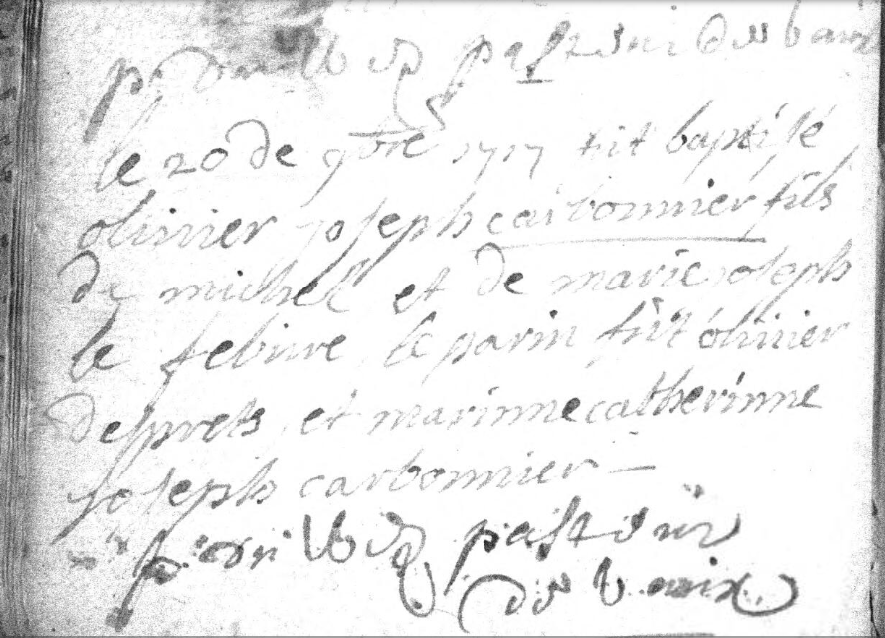 pasteur de vaix
le 20 de 9bre 1717 fut baptisé
olivier joseph carbonnier fils
de michel et de marie joseph
le febure le parin fut olivier
desprets et marinne catherinne
joseph carbonnier
pasteur
de vaix